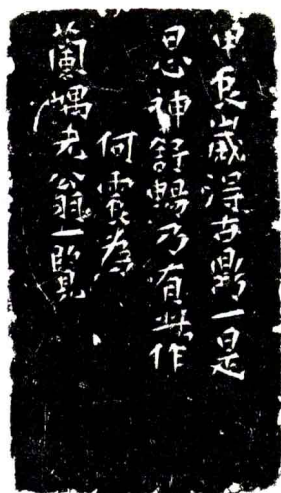 甲辰歲得古鼎一是
思神舒暢乃有此作
何震為
蘭嵎老翁一覽